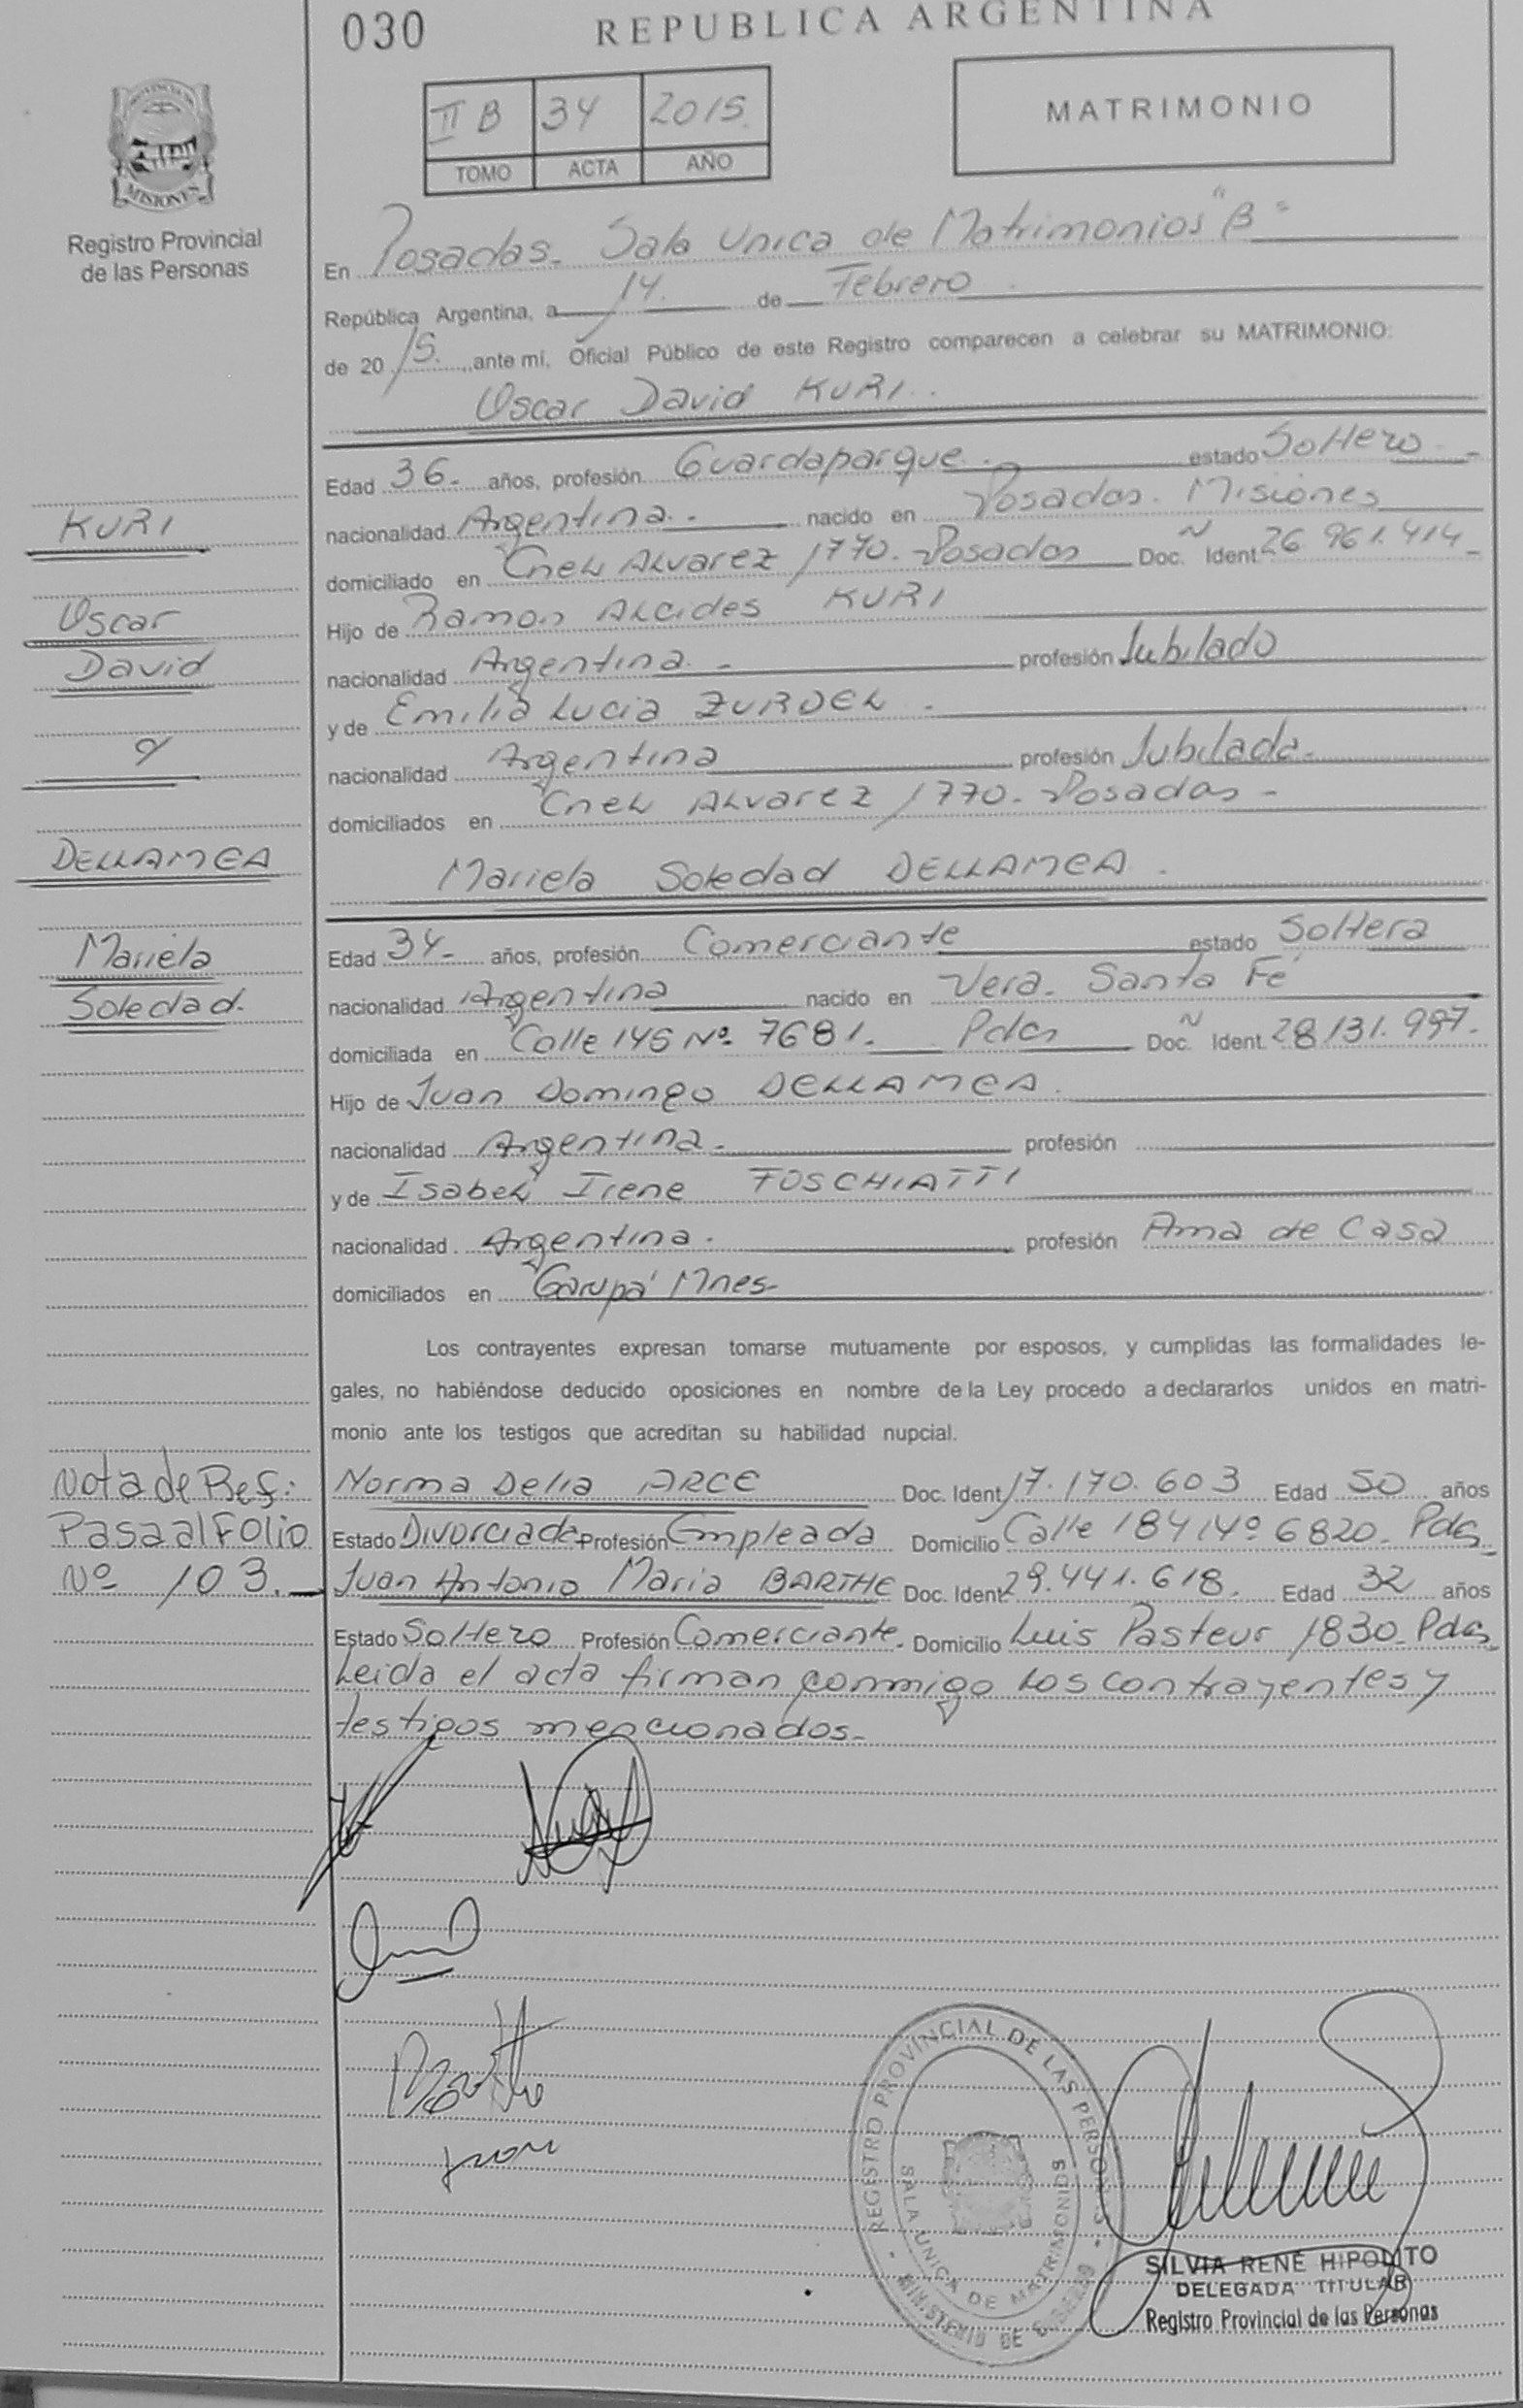 030
REPUBLICA ARGENTINA
II B 34 2015
TOMO ACTA AÑO
MATRIMONIO
PROVINCIA DE
MISIONES
Registro Provincial
de las Personas
En Posadas. Sala Unica de Matrimonios "B"
República Argentina, a 14. de Febrero
de 2015. ante mí, Oficial Público de este Registro comparecen a celebrar su MATRIMONIO:
Oscar David KURI.
Edad 36- años, profesión Guardaparque. estado Soltero
nacionalidad Argentina. nacido en Posadas. Misiones
domiciliado en Cnel Alvarez 1770. Posadas Doc. N Ident 26.961.414
Hijo de Ramon Alcides KURI
nacionalidad Argentina. profesión Jubilado
y de Emilia Lucia ZURDEL.
nacionalidad Argentina profesión Jubilada.
domiciliados en Cnel Alvarez 1770. Posadas
KURI
Oscar
David
y
DELLAMEA
Mariela
Soledad.
Mariela Soledad DELLAMEA.
Edad 34- años, profesión Comerciante estado Soltera
nacionalidad Argentina nacido en Vera. Santa Fé
domiciliada en Calle 145 Nº 7681. Pdas Doc. N Ident. 28.131.997.
Hijo de Juan Domingo DELLAMEA.
nacionalidad Argentina. profesión
y de Isabel Irene FOSCHIATTI
nacionalidad Argentina. profesión Ama de Casa
domiciliados en Garupá Mnes-
Los contrayentes expresan tomarse mutuamente por esposos, y cumplidas las formalidades le-
gales, no habiéndose deducido oposiciones en nombre de la Ley procedo a declararlos unidos en matri-
monio ante los testigos que acreditan su habilidad nupcial.
Nota de Ref:
Pasa al Folio
Nº 103.
Norma Delia ARCE Doc. Ident 17.170.603 Edad 50 años
Estado Divorciada Profesión Empleada Domicilio Calle 184 Nº 6820. Pdas
Juan Antonio Maria BARTHE Doc. Ident 29.441.618. Edad 32 años
Estado Soltero Profesión Comerciante. Domicilio Luis Pasteur 1830. Pdas
Leida el acta firman conmigo los contrayentes y
testigos mencionados.
REGISTRO PROVINCIAL DE LAS PERSONAS
SALA UNICA DE MATRIMONIOS
MINISTERIO DE GOBIERNO
SILVIA RENÉ HIPOLITO
DELEGADA TITULAR
Registro Provincial de las Personas